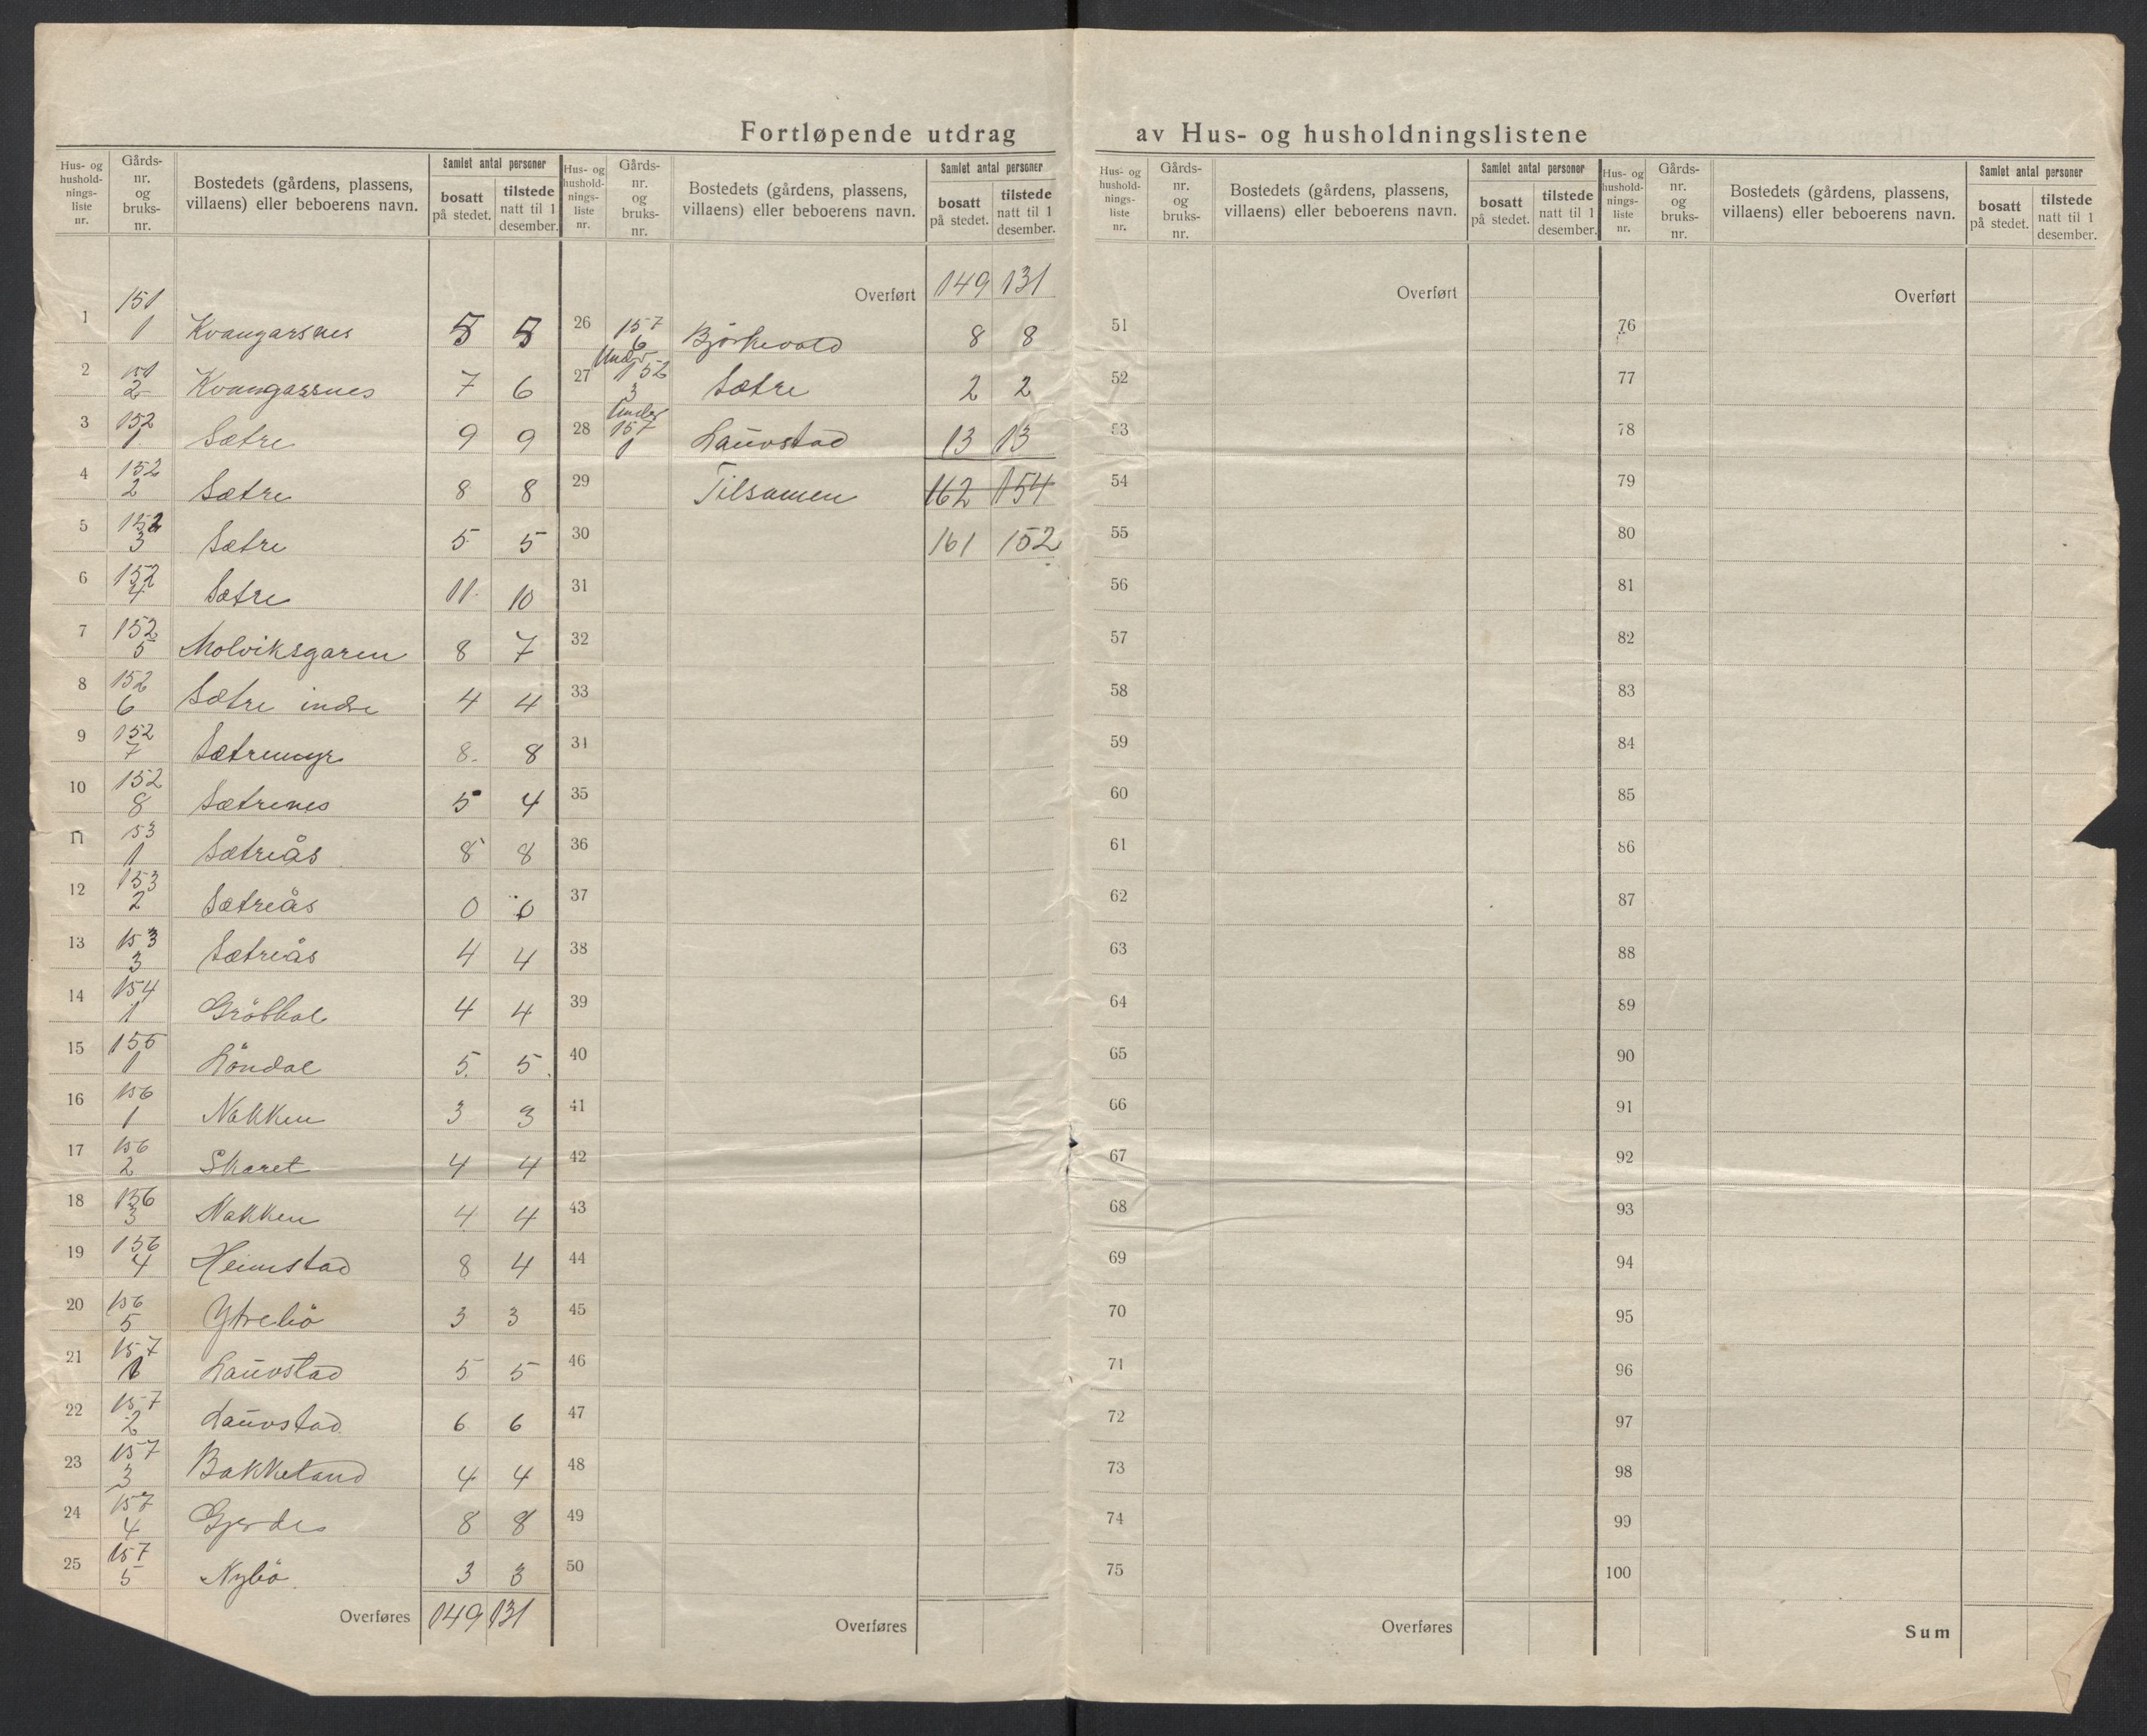 Fortløpende utdrag av Hus- og husholdningslistene
Hus- og husholdningsliste nr. | Gårds-nr. og bruks-nr. | Bostedets (gårdens, plassens, villaens) eller beboerens navn. | Samlet antal personer bosatt på stedet. | tilstede natt til 1 desember.
1 | 151 1 | Kvangarsnes | 5 | 5
2 | 151 2 | Kvangarsnes | 7 | 6
3 | 152 1 | Sætre | 9 | 9
4 | 152 2 | Sætre | 8 | 8
5 | 152 3 | Sætre | 5 | 5
6 | 152 4 | Sætre | 11 | 10
7 | 152 5 | Molviksgaren | 8 | 7
8 | 152 6 | Sætre indre | 4 | 4
9 | 152 7 | Sætremyr | 8 | 8
10 | 152 8 | Sætrenes | 5 | 4
11 | 153 1 | Sætreås | 8 | 8
12 | 153 2 | Sætreås | 0 | 0
13 | 153 3 | Sætreås | 4 | 4
14 | 154 1 | 4 | 4
15 | 155 1 | Löndal | 5 | 5
16 | 156 1 | Nakken | 3 | 3
17 | 156 2 | Skaret | 4 | 4
18 | 156 3 | Nakken | 4 | 4
19 | 156 4 | Heimstad | 8 | 4
20 | 156 5 | Ytrebö | 3 | 3
21 | 157 1 | Lauvstad | 5 | 5
22 | 157 2 | Lauvstad | 6 | 6
23 | 157 3 | Bakketand | 4 | 4
24 | 157 4 | Gjerde | 8 | 8
25 | 157 5 | Nybö | 3 | 3
Overføres | 149 | 131
Hus- og husholdningsliste nr. | Gårds-nr. og bruks-nr. | Bostedets (gårdens, plassens, villaens) eller beboerens navn. | Samlet antal personer bosatt på stedet. | tilstede natt til 1 desember.
Overført | 149 | 131
26 | 157 6 | Björkevold | 8 | 8
27 | Under 152 3 | Sætre | 2 | 2
28 | Under 157 1 | Lauvstad | 13 | 13
29 | Tilsamen | 162 | 154
30 | 161 | 152
31
32
33
34
35
36
37
38
39
40
41
42
43
44
45
46
47
48
49
50
Overføres
Hus- og husholdningsliste nr. | Gårds-nr. og bruks-nr. | Bostedets (gårdens, plassens, villaens) eller beboerens navn. | Samlet antal personer bosatt på stedet. | tilstede natt til 1 desember.
Overført
51
52
53
54
55
56
57
58
59
60
61
62
63
64
65
66
67
68
69
70
71
72
73
74
75
Overføres
Hus- og husholdningsliste nr. | Gårds-nr. og bruks-nr. | Bostedets (gårdens, plassens, villaens) eller beboerens navn. | Samlet antal personer bosatt på stedet. | tilstede natt til 1 desember.
Overført
76
77
78
79
80
81
82
83
84
85
86
87
88
89
90
91
92
93
94
95
96
97
98
99
100
Sum